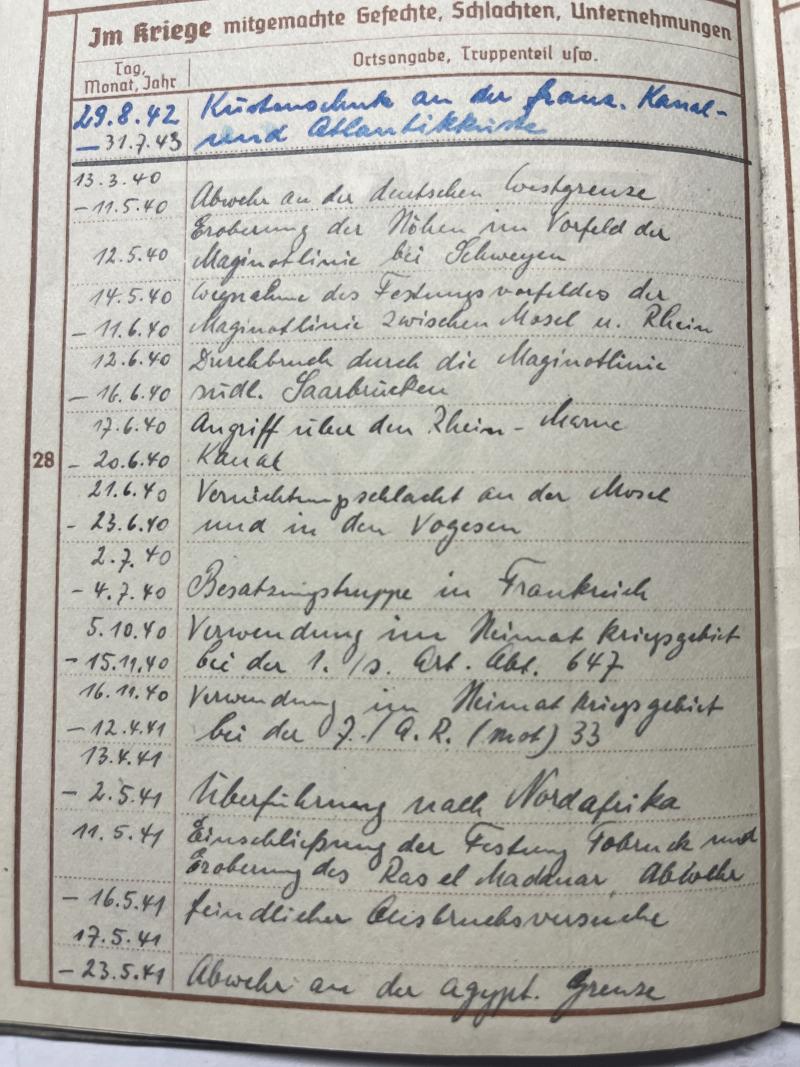 Im Kriege mitgemachte Gefechte, Schlachten, Unternehmungen
Tag, Monat, Jahr
Ortsangabe, Truppenteil usw.
29.8.42 Küstenschutz an der franz. Kanal-
– 31.7.43 und Atlantikküste
13.3.40
– 11.5.40 Abwehr an der deutschen Westgrenze
Eroberung der Höhen im Vorfeld der
12.5.40 Maginotlinie bei Schweyen
14.5.40 Wegnahme des Festungsvorfeldes der
– 11.6.40 Maginotlinie zwischen Mosel u. Rhein
12.6.40 Durchbruch durch die Maginotlinie
– 16.6.40 südl. Saarbrücken
17.6.40 Angriff über den Rhein - Marne
28
– 20.6.40 Kanal
21.6.40 Vernichtungsschlacht an der Mosel
– 23.6.40 und in den Vogesen
2.7.40
– 4.7.40 Besatzungstruppe in Frankreich
5.10.40 Verwendung im Heimatkriegsgebiet
– 15.11.40 bei der 1./s. Art. Abt. 647
16.11.40 Verwendung im Heimatkriegsgebiet
– 12.4.41 bei der 7./A.R. (mot) 33
13.4.41
– 2.5.41 Überführung nach Nordafrika
11.5.41 Einschließung der Festung Tobruck und
Eroberung des Ras el Madauar, Abwehr
– 16.5.41 feindlicher Ausbruchsversuche
17.5.41
– 23.5.41 Abwehr an der ägypt. Grenze